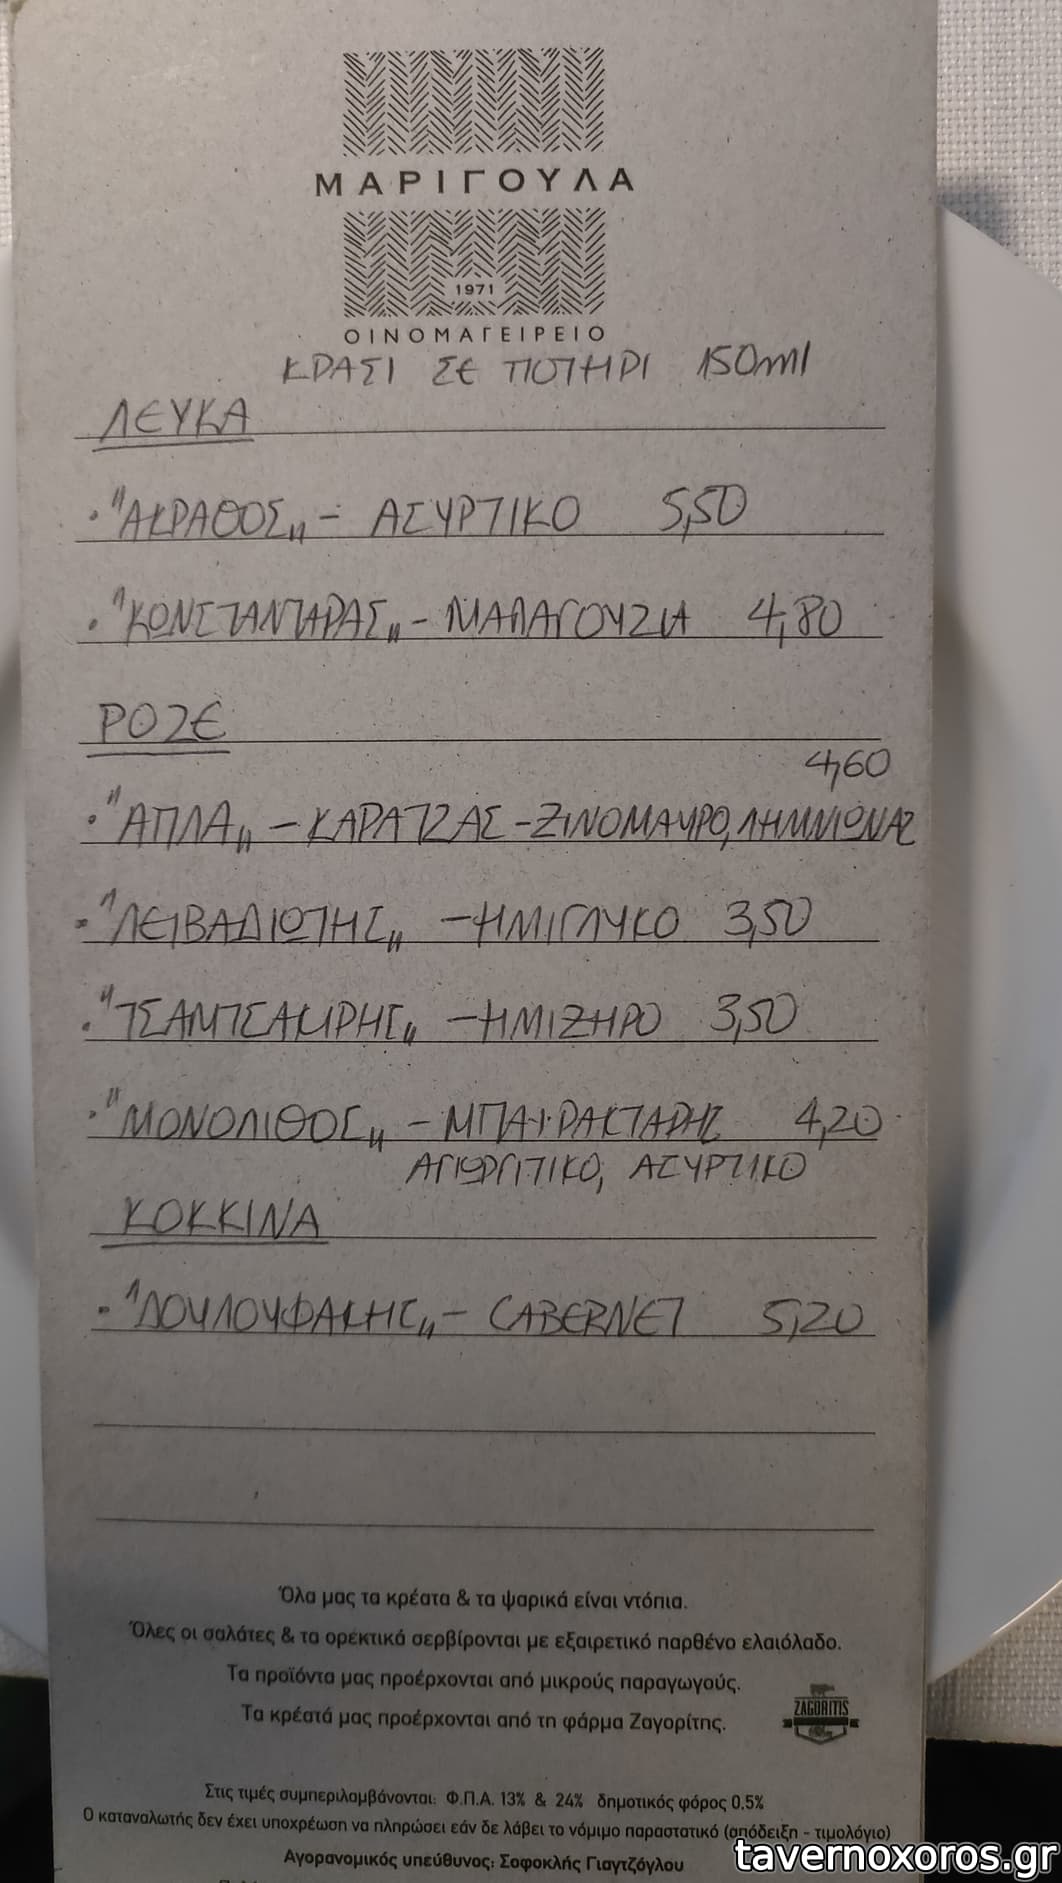 ΜΑΡΙΓΟΥΛΑ
1971
ΟΙΝΟΜΑΓΕΙΡΕΙΟ
ΚΡΑΣΙ ΣΕ ΠΟΤΗΡΙ 150ml
ΛΕΥΚΑ
• "ΑΚΡΑΘΟΣ" - ΑΣΥΡΤΙΚΟ 5,50
• "ΚΩΝΣΤΑΝΤΑΡΑΣ" - ΜΑΛΑΓΟΥΖΙΑ 4,80
ΡΟΖΕ
4,60
• "ΑΠΛΑ" - ΚΑΡΑΤΖΑΣ - ΞΙΝΟΜΑΥΡΟ, ΛΗΜΝΙΩΝΑΣ
• "ΛΕΙΒΑΔΙΩΤΗΣ" - ΗΜΙΓΛΥΚΟ 3,50
• "ΤΣΑΝΤΣΑΚΙΡΗΣ" - ΗΜΙΞΗΡΟ 3,50
• "ΜΟΝΟΛΙΘΟΣ" - ΜΠΑΙΡΑΚΤΑΡΗΣ 4,20
ΑΓΙΩΡΓΙΤΙΚΟ, ΑΣΥΡΤΙΚΟ
ΚΟΚΚΙΝΑ
• "ΔΟΥΛΟΥΦΑΚΗΣ" - CABERNET 5,20
Όλα μας τα κρέατα & τα ψαρικά είναι ντόπια.
Όλες οι σαλάτες & τα ορεκτικά σερβίρονται με εξαιρετικό παρθένο ελαιόλαδο.
Τα προϊόντα μας προέρχονται από μικρούς παραγωγούς.
Τα κρέατά μας προέρχονται από τη φάρμα Ζαγορίτης.
ZAGORITIS
Στις τιμές συμπεριλαμβάνονται: Φ.Π.Α. 13% & 24% δημοτικός φόρος 0.5%
Ο καταναλωτής δεν έχει υποχρέωση να πληρώσει εάν δε λάβει το νόμιμο παραστατικό (απόδειξη - τιμολόγιο)
Αγορανομικός υπεύθυνος: Σοφοκλής Γιαγτζόγλου
tavernoxoros.gr